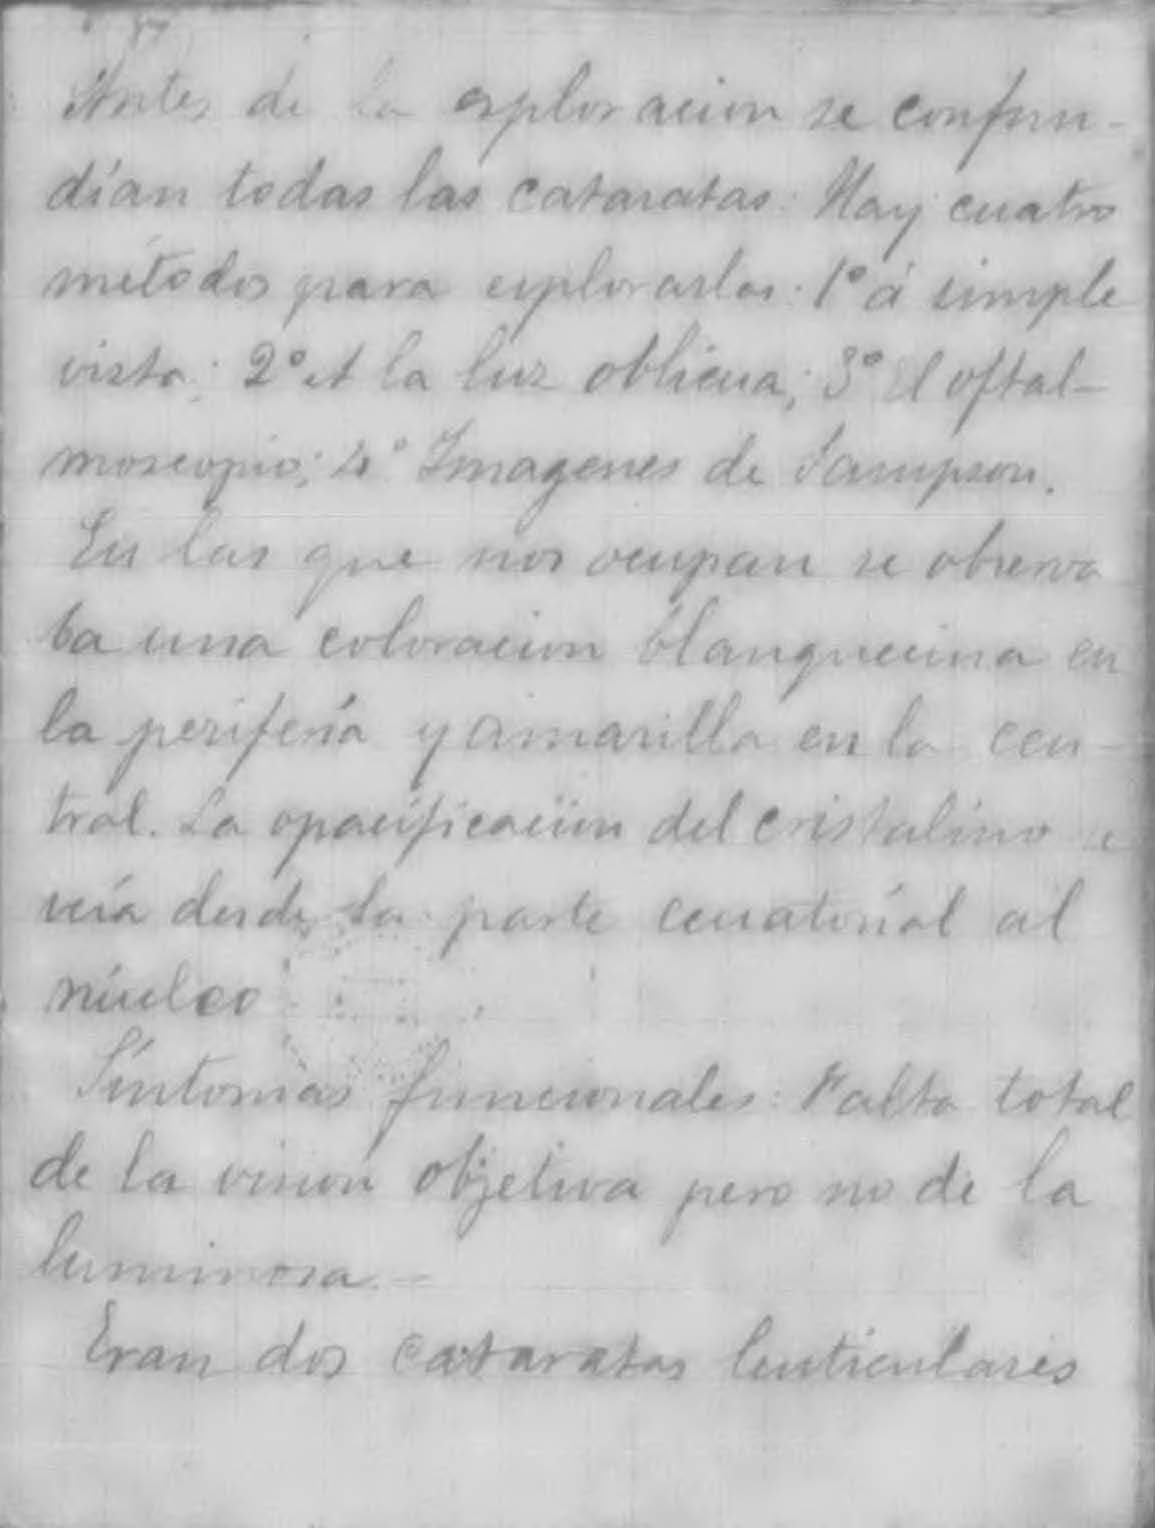 Antes de la esploracion se confun-
dían todas las cataratas. Hay cuatro
métodos para esplorarlas: 1º á simple
vista; 2º A la luz oblicua; 3º El oftal-
moscopio; 4º Imagenes de Sampson.
En las que nos ocupan se observa
ba una coloracion blanquecina en
la periferia y amarilla en la cen-
tral. La opacificación del cristalino se
veía desde la parte ecuatorial al
núcleo
Síntomas funcionales: Falta total
de la vision objetiva pero no de la
luminosa.-
Eran dos cataratas lenticulares